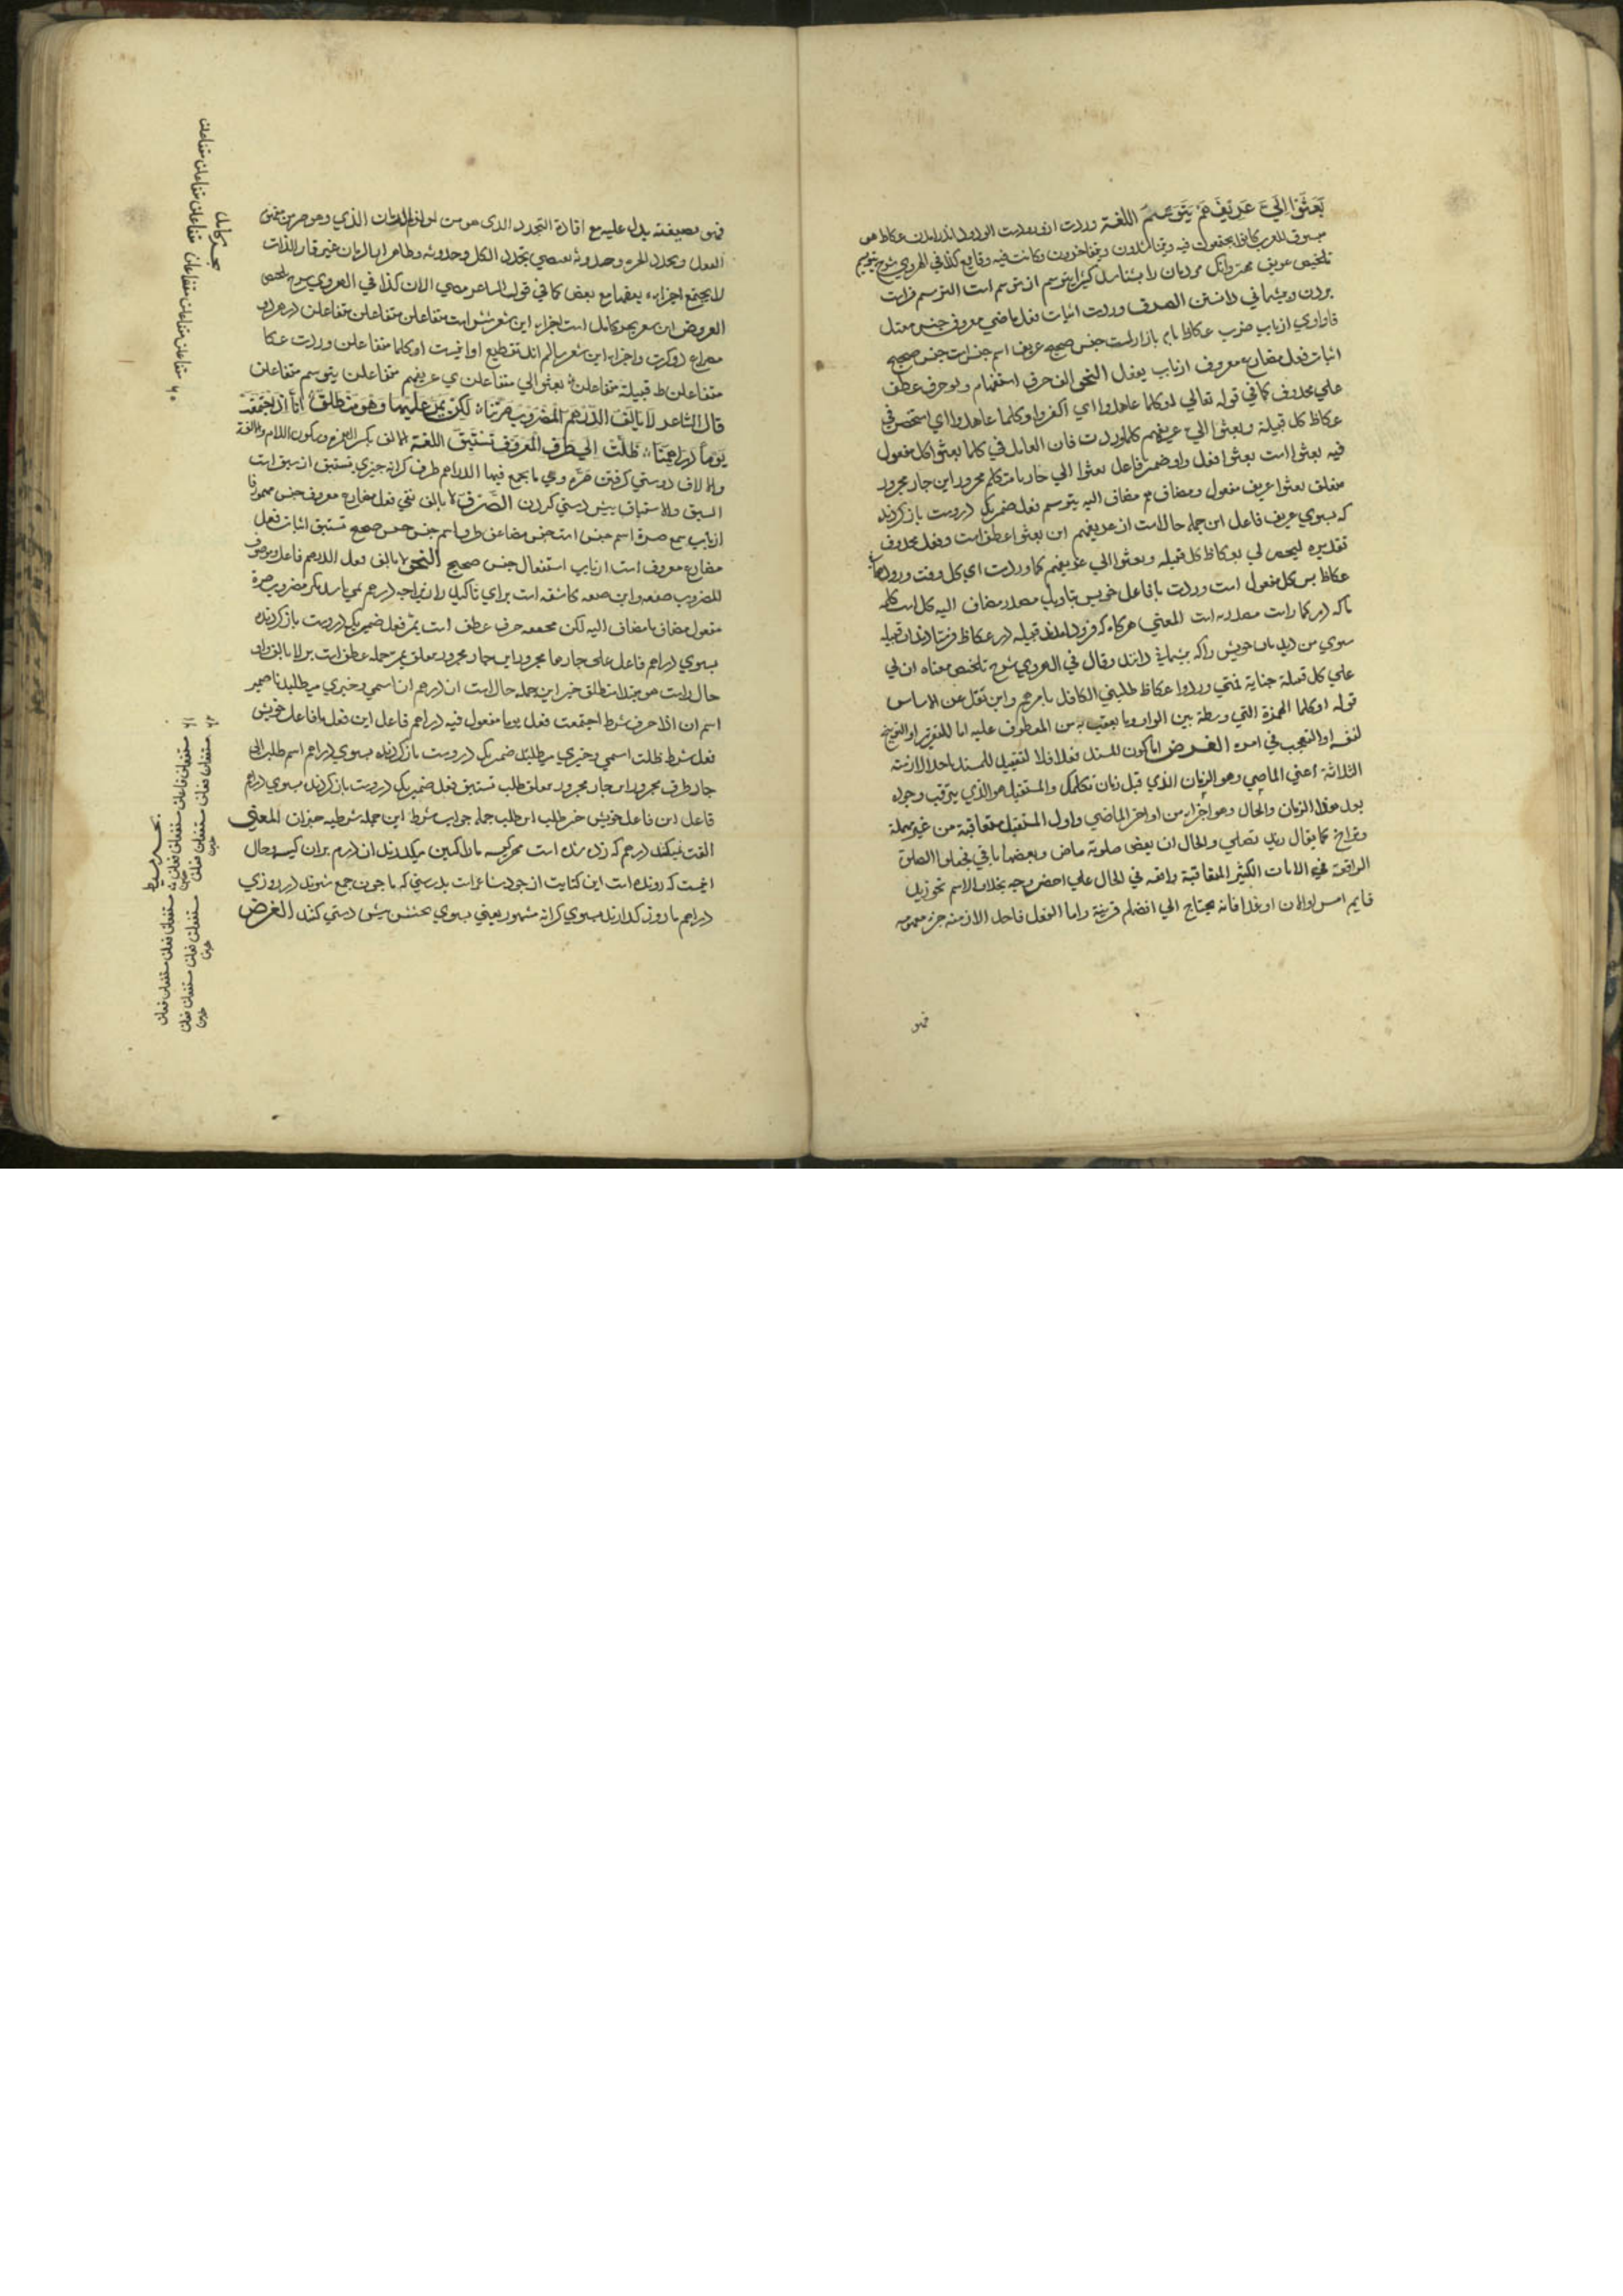 بَعَثُوا اِلَيَّ عَرِيفَهُمْ يَتَوَسَّمُ اللغة وردت از ورودست الورود اندر امدن عكاظ هو
سوق للعرب كانوا يجتمعون فيه ويتناشدون ويتفاخرون وكانت فيه وقايع كذا في الهروي شرح
تلخيص عريف مهتر وانك مردمان را بشناسد يتوسم از توسم است التوسم فراست
بردن ونشاني دانستن الصرف وردت اثبات فعل ماضي معروف جنس معتل
فاواوي از باب ضرب عكاظ نام بازاراست جنس صحيح عريف اسم جنس است جنس صحيح
اثبات فعل مضارع معروف از باب تفعل النحو الف حرف استفهام واو حرف عطف
علي محذوف كما في قوله تعالي اوكلما عاهدوا اي اكفروا وكلما عاهدوا اي استحصر في
عكاظ كل قبيلة وبعثوا الي عريفهم كلما وردت فان العامل في كلما بعثوا كل مفعول
فيه بعثوا است بعثوا فعل واو ضمير فاعل بعثوا الي جار با متكلم مجرور اين جار مجرور
متعلق بعثوا عريف مفعول ومضاف هم مضاف اليه يتوسم فعل ضمير يكي دروست باز كردنده
كه بسوي عريف فاعل اين جمله حال است از عريفهم اين بعثوا عطف است وفعل محذوف
عكاظ بس كل مفعول است وردت با فاعل خويش بتاويل مصدر مضاف اليه كل است كلمه
ما كه در كلما است مصدريه است المعني هركاه كه فرود امدند قبيله در عكاظ فرستادند ان قبيله
سوي من خويش را كه بيشماني دانند وقال في الهروي شرح تلخيص معناه ان لي
علي كل قبيلة جناية فمتي وردوا عكاظ طلبني الكافل بامرهم واين نقل عن الاساس
قوله اوكلما الهمزة التي واسطة بين الواو وما يعقب به من المعطوف عليه اما للتقرير او التوبيخ
الغرض اما كون المسند فعلا فلا لتقييد المسند باحد الازمنة
الثلاثة اعني الماضي وهو الزمان الذي قبل زمان تكلمك والمستقبل هو الذي يترقب وجوده
بعد هذا الزمان والحال وهو اجزاء من اواخر الماضي واول المستقبل متعاقبة من غير مهلة
وتراخ كما يقال زيد تصلي والحال ان بعض صلوته ماض وبعضها باقي فجعلوا الصلوة
الواقعة في الانات الكثير المتعاقبة واقعه في الحال علي اخصر وجه بخلاف الاسم نحو زيد
قايم امس او الان او غدا فانه يحتاج الي انضمام قرينة واما الفعل فاحد الازمنه جزء مفهومه
فهو
فهو بصيغته يدل عليه مع افادة التجدد الذي هو من لوازم الزمان الذي وهو جزء من مفهوم
الفعل وتجدد الجزء وحدوثه يقتضي تجدد الكل وحدوثه وظاهر ان الزمان غير قار الذات
لا يجتمع اجزاءه بعضها مع بعض كما في قول الشاعر كذا في الهروي شرح تلخيص
العروض اين شعر بحر كامل است اجزاء اين شعر شش است متفاعلن متفاعلن متفاعلن در هر دو
مصراع دو كرت واجزاء اين شعر سالم اند تقطيع او اينست اوكلما متفاعلن وردت عكا
متفاعلن ظ قبيلة متفاعلن بعثوا الي متفاعلن ي عريفهم متفاعلن يتوسم متفاعلن
قال الشاعر لَا يَالَفُ الدِّرْهَمُ الْمَضْرُوبُ صُرَّتَنَا لٰكِنْ يَمُرُّ عَلَيْهَا وَهُوَ مُنْطَلِقٌ اِنَّا اِذَا اجْتَمَعَتْ
يَوْماً دَرَاهِمُنَا ظَلَّتْ اِلَي طُرُقِ الْمَعْرُوفِ تَسْتَبِقُ اللغة الالف بكسر الهمزه وسكون اللام والالفة
والالاف دوستي كرفتن صره وهي ما يجمع فيها الدراهم طرف كرانه چيزي تستبق از سبق است
السبق والاستباق پيش دستي كردن الصَّرف لا يالف نفي فعل مضارع معروف جنس مهموز فا
از باب سمع صرة اسم جنس است جنس مضاعف طرف اسم جنس جنس صحيح تستبق اثبات فعل
مضارع معروف است از باب استفعال جنس صحيح النحو لا يالف فعل الدرهم فاعل وموصوف
المضروب صفت واين صفة كاشفه است براي تاكيد زانچه درهم نمي باشد مكر مضروب صرة
مفعول مضاف نا مضاف اليه لكن مخففه حرف عطف است يمر فعل ضمير يكي دروست باز كردنده
بسوي دراهم فاعل علي جار ها مجرور اين جار مجرور متعلق يمر جمله عطف است بر لا يالف واو
حال راست هو مبتدا منطلق خبر اين جمله حال است ان درهم ان اسمي وخبري ميطلبد نا ضمير
اسم ان اذا حرف شرط اجتمعت فعل يوما مفعول فيه دراهم فاعل اين فعل با فاعل خويش
فعل شرط ظلت اسمي وخبري ميطلبد ضمير يكي دروست باز كردنده بسوي دراهم اسم ظلت الي
جار طرف مجرور اين جار مجرور متعلق ظلت تستبق فعل ضمير يكي دروست باز كردنده بسوي دراهم
فاعل اين فاعل خويش خبر ظلت اين ظلت جمله جواب شرط اين جمله شرطيه خبر ان المعني
الفت نميكند درهم كه زده شده است مر كيسه ما را لكن ميكذرند ان درم بران كيسه وحال
اينست كه رونده است اين كنايت از جود شاعر است بدرستي كه ما چون جمع شوند در روزي
دراهم ما روز كذارند بسوي كرانه مشهور يعني بسوي بخشش پيش دستي كنند الغرض
بحر كامل
متفاعلن متفاعلن متفاعلن متفاعلن متفاعلن متفاعلن
بحر بسيط
مستفعلن فاعلن مستفعلن فعلن مستفعلن فعلن مستفعلن فعلن